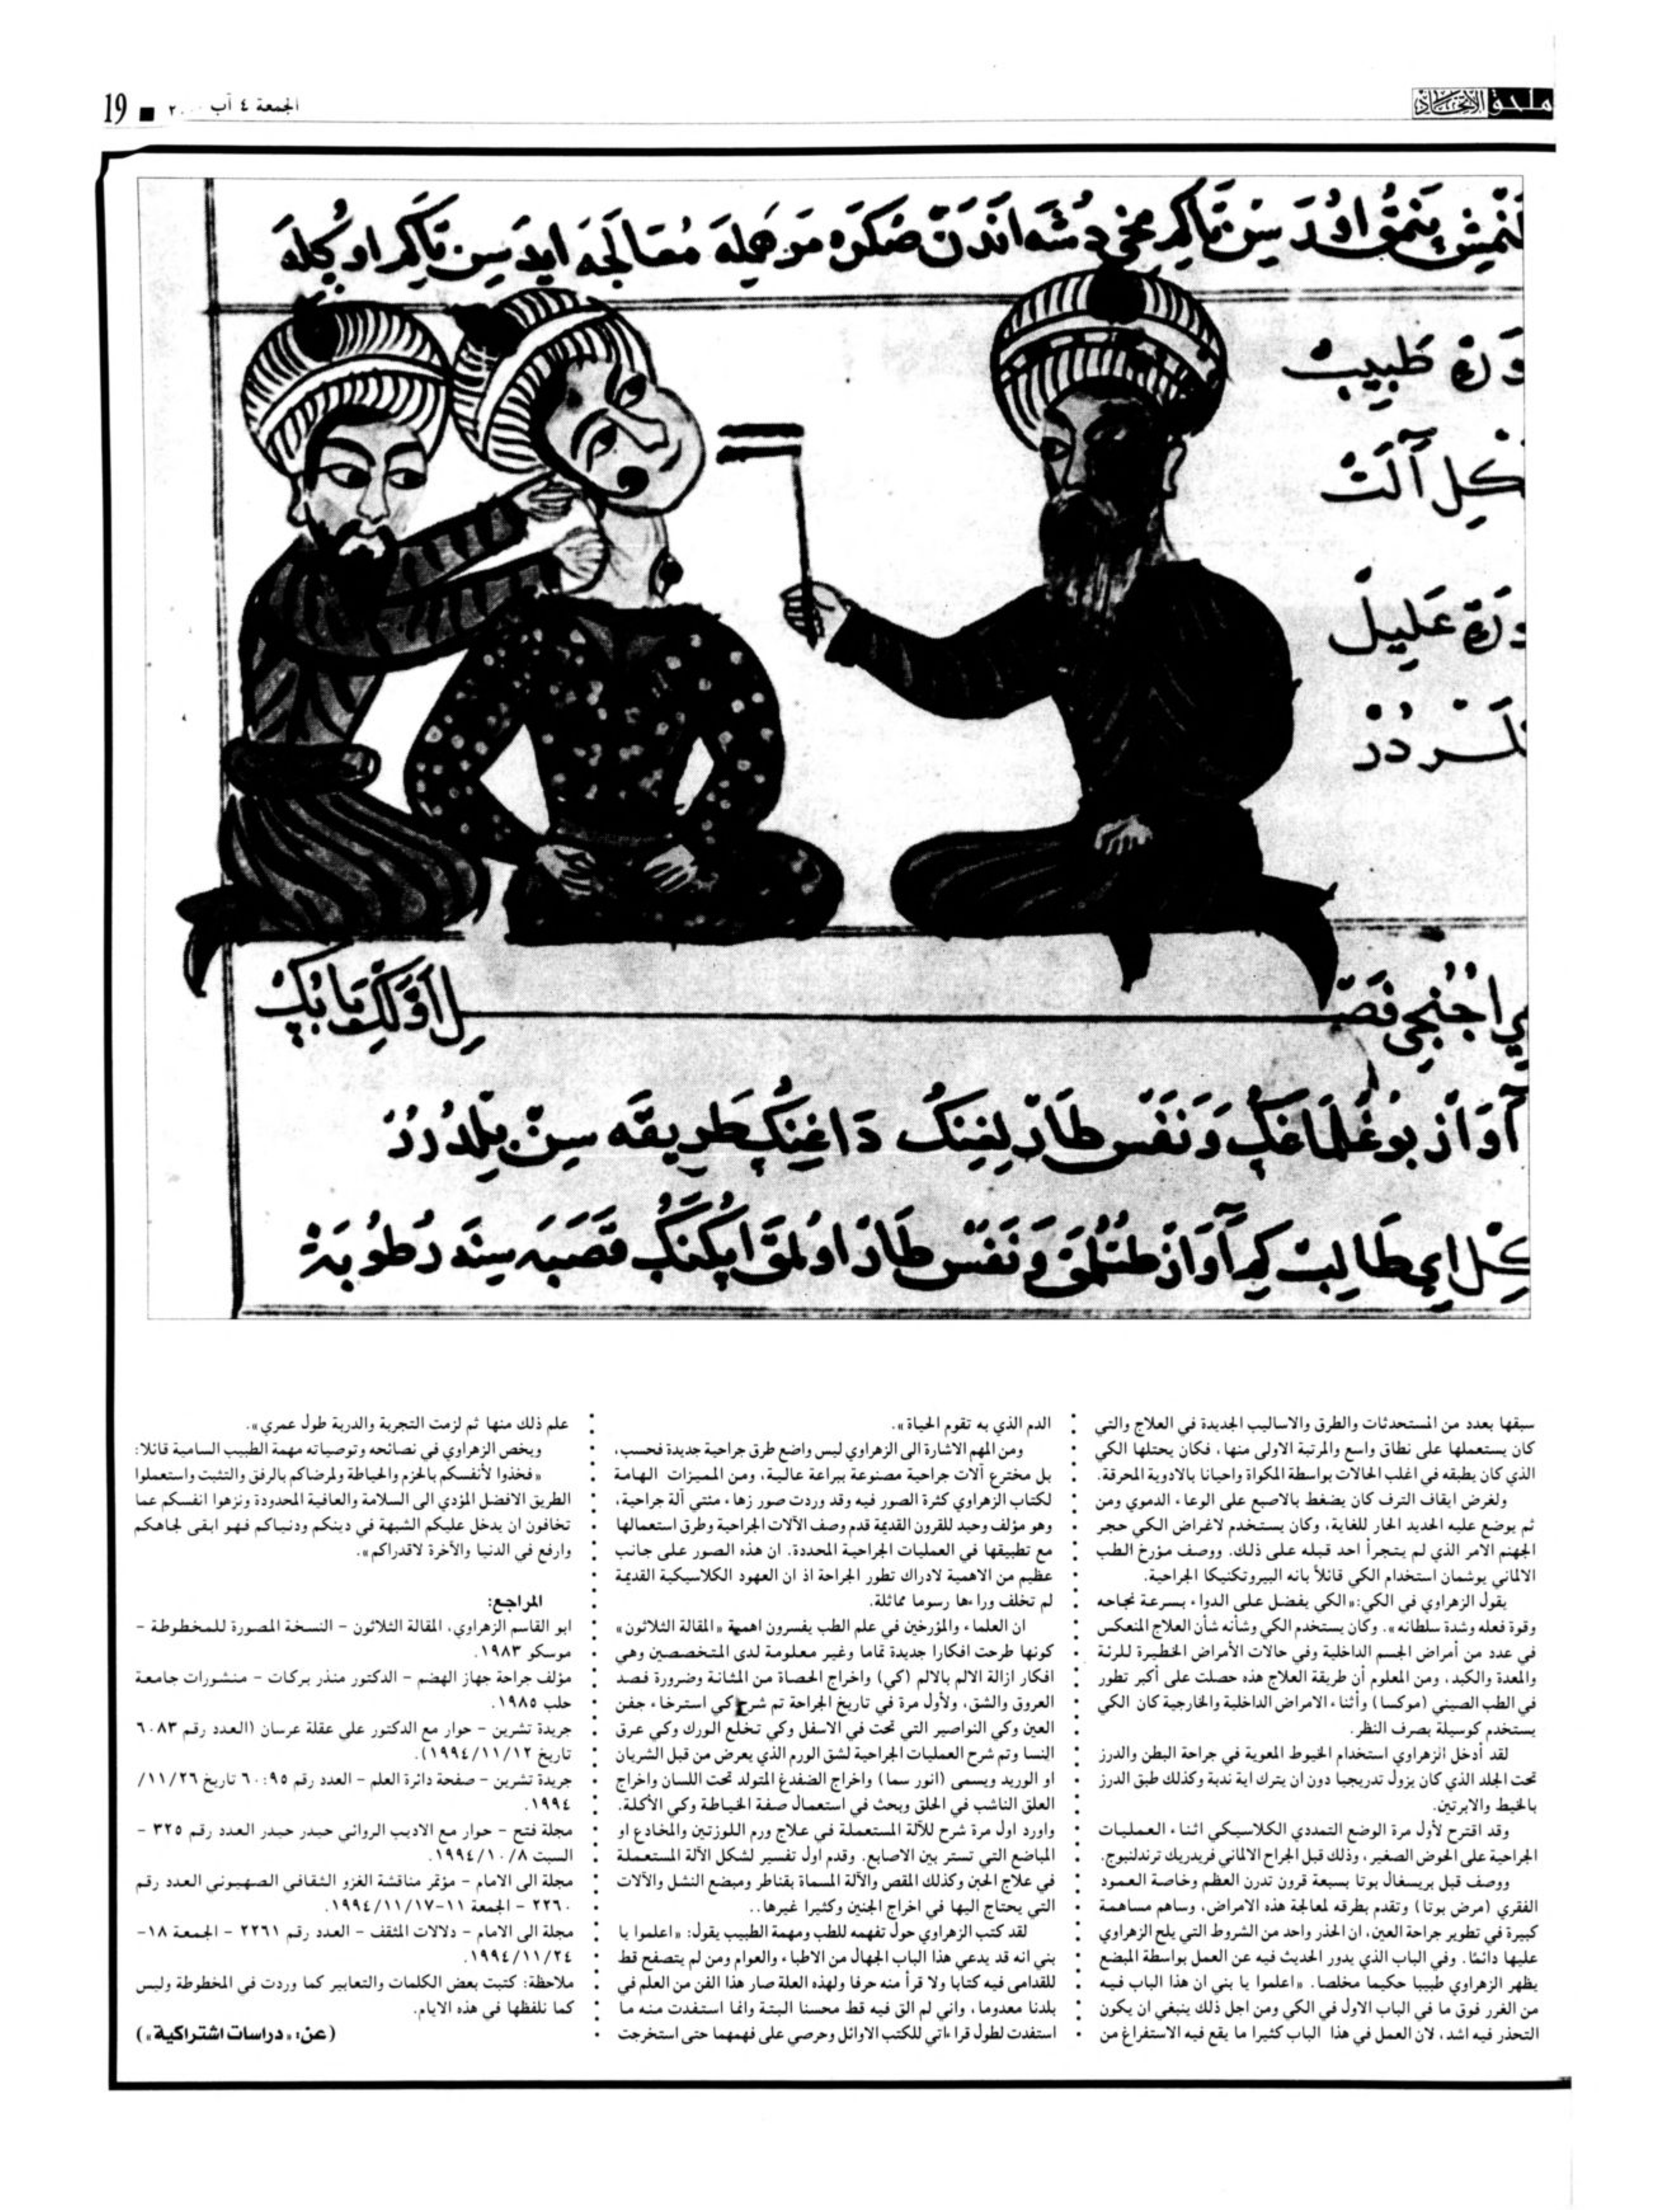 ملحق الاتحاد
الجمعة ٤ آب
19
سبقها بعدد من المستحدثات والطرق والاساليب الجديدة في العلاج والتي
كان يستعملها على نطاق واسع والمرتبة الاولى منها، فكان يحتلها الكي
الذي كان يطبقه في اغلب الحالات بواسطة المكواة واحيانا بالادوية المحرقة.
ولغرض ايقاف النزف كان يضغط بالاصبع على الوعاء الدموي ومن
ثم يوضع عليه الحديد الحار للغاية، وكان يستخدم لاغراض الكي حجر
الجهنم الامر الذي لم يتجرأ احد قبله على ذلك. ووصف مؤرخ الطب
الالماني يوشمان استخدام الكي قائلاً بانه البيروتكنيكا الجراحية.
يقول الزهراوي في الكي: «الكي يفضل على الدواء بسرعة نجاحه
وقوة فعله وشدة سلطانه». وكان يستخدم الكي وشأنه شأن العلاج المنعكس
في عدد من أمراض الجسم الداخلية وفي حالات الأمراض الخطيرة للرئة
والمعدة والكبد، ومن المعلوم أن طريقة العلاج هذه حصلت على أكبر تطور
في الطب الصيني (موكسا) وأثناء الامراض الداخلية والخارجية كان الكي
يستخدم كوسيلة بصرف النظر.
لقد أدخل الزهراوي استخدام الخيوط المعوية في جراحة البطن والدرز
تحت الجلد الذي كان يزول تدريجيا دون ان يترك اية ندبة وكذلك طبق الدرز
بالخيط والابرتين.
وقد اقترح لأول مرة الوضع التمددي الكلاسيكي اثناء العمليات
الجراحية على الحوض الصغير، وذلك قبل الجراح الالماني فريدريك ترندلنبوج.
ووصف قبل بريسغال بوتا بسبعة قرون تدرن العظم وخاصة العمود
الفقري (مرض بوتا) وتقدم بطرقه لمعالجة هذه الامراض، وساهم مساهمة
كبيرة في تطوير جراحة العين، ان الحذر واحد من الشروط التي يلح الزهراوي
عليها دائمًا. وفي الباب الذي يدور الحديث فيه عن العمل بواسطة المبضع
يظهر الزهراوي طبيبا حكيما مخلصا. «اعلموا يا بني ان هذا الباب فيه
من الغرر فوق ما في الباب الاول في الكي ومن اجل ذلك ينبغي ان يكون
التحذر فيه اشد، لان العمل في هذا الباب كثيرا ما يقع فيه الاستفراغ من
الدم الذي به تقوم الحياة».
ومن المهم الاشارة الى الزهراوي ليس واضع طرق جراحية جديدة فحسب،
بل مخترع آلات جراحية مصنوعة ببراعة عالية، ومن المميزات الهامة
لكتاب الزهراوي كثرة الصور فيه وقد وردت صور زهاء مئتي آلة جراحية،
وهو مؤلف وحيد للقرون القديمة قدم وصف الآلات الجراحية وطرق استعمالها
مع تطبيقها في العمليات الجراحية المحددة. ان هذه الصور على جانب
عظيم من الاهمية لادراك تطور الجراحة اذ ان العهود الكلاسيكية القديمة
لم تخلف وراءها رسوما مماثلة.
ان العلماء والمؤرخين في علم الطب يفسرون اهمية «المقالة الثلاثون»
كونها طرحت افكارا جديدة تماما وغير معلومة لدى المتخصصين وهي
افكار ازالة الالم بالالم (كي) واخراج الحصاة من المثانة وضرورة فصد
العروق والشق، ولأول مرة في تاريخ الجراحة تم شرح كي استرخاء جفن
العين وكي النواصير التي تحت في الاسفل وكي تخلع الورك وكي عرق
النسا وتم شرح العمليات الجراحية لشق الورم الذي يعرض من قبل الشريان
او الوريد ويسمى (انور سما) واخراج الضفدع المتولد تحت اللسان واخراج
العلق الناشب في الحلق وبحث في استعمال صفة الخياطة وكي الأكلة.
واورد اول مرة شرح للآلة المستعملة في علاج ورم اللوزتين والمخادع او
المباضع التي تستر بين الاصابع. وقدم اول تفسير لشكل الآلة المستعملة
في علاج الحبن وكذلك المقص والآلة المسماة بقناطر ومبضع النشل والآلات
التي يحتاج اليها في اخراج الجنين وكثيرا غيرها..
لقد كتب الزهراوي حول تفهمه للطب ومهمة الطبيب يقول: «اعلموا يا
بني انه قد يدعي هذا الباب الجهال من الاطباء والعوام ومن لم يتصفح قط
للقدامى فيه كتابا ولا قرأ منه حرفا ولهذه العلة صار هذا الفن من العلم في
بلدنا معدوما، واني لم الق فيه قط محسنا البتة وانما استفدت منه ما
استفدت لطول قراءاتي للكتب الاوائل وحرصي على فهمهما حتى استخرجت
علم ذلك منها ثم لزمت التجربة والدربة طول عمري».
ويخص الزهراوي في نصائحه وتوصياته مهمة الطبيب السامية قائلا:
«فخذوا لأنفسكم بالحزم والحياطة ولمرضاكم بالرفق والتثبت واستعملوا
الطريق الافضل المؤدي الى السلامة والعافية المحدودة ونزهوا انفسكم عما
تخافون ان يدخل عليكم الشبهة في دينكم ودنياكم فهو ابقى لجاهكم
وارفع في الدنيا والآخرة لاقدراكم».
المراجع:
ابو القاسم الزهراوي، المقالة الثلاثون - النسخة المصورة للمخطوطة -
موسكو ١٩٨٣.
مؤلف جراحة جهاز الهضم - الدكتور منذر بركات - منشورات جامعة
حلب ١٩٨٥.
جريدة تشرين - حوار مع الدكتور علي عقلة عرسان (العدد رقم ٦٠٨٣
تاريخ ١٩٩٤/١١/١٢).
جريدة تشرين - صفحة دائرة العلم - العدد رقم ٦٠:٩٥ تاريخ ١١/٢٦/
١٩٩٤.
مجلة فتح - حوار مع الاديب الروائي حيدر حيدر العدد رقم ٣٢٥ -
السبت ١٩٩٤/١٠/٨.
مجلة الى الامام - مؤتمر مناقشة الغزو الثقافي الصهيوني العدد رقم
٢٢٦٠ - الجمعة ١١-١٩٩٤/١١/١٧.
مجلة الى الامام - دلالات المثقف - العدد رقم ٢٢٦١ - الجمعة ١٨-
١٩٩٤/١١/٢٤.
ملاحظة: كتبت بعض الكلمات والتعابير كما وردت في المخطوطة وليس
كما نلفظها في هذه الايام.
(عن: «دراسات اشتراكية»)